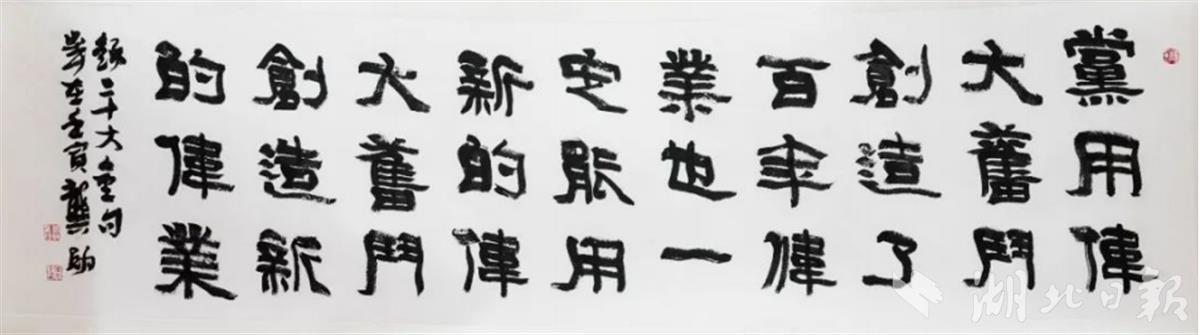 黨用偉
大奮鬥
創造了
百年偉
業也一
定能用
新的偉
大奮鬥
創造新
的偉業
錄二十大金句
歲在壬寅龔
湖北日報